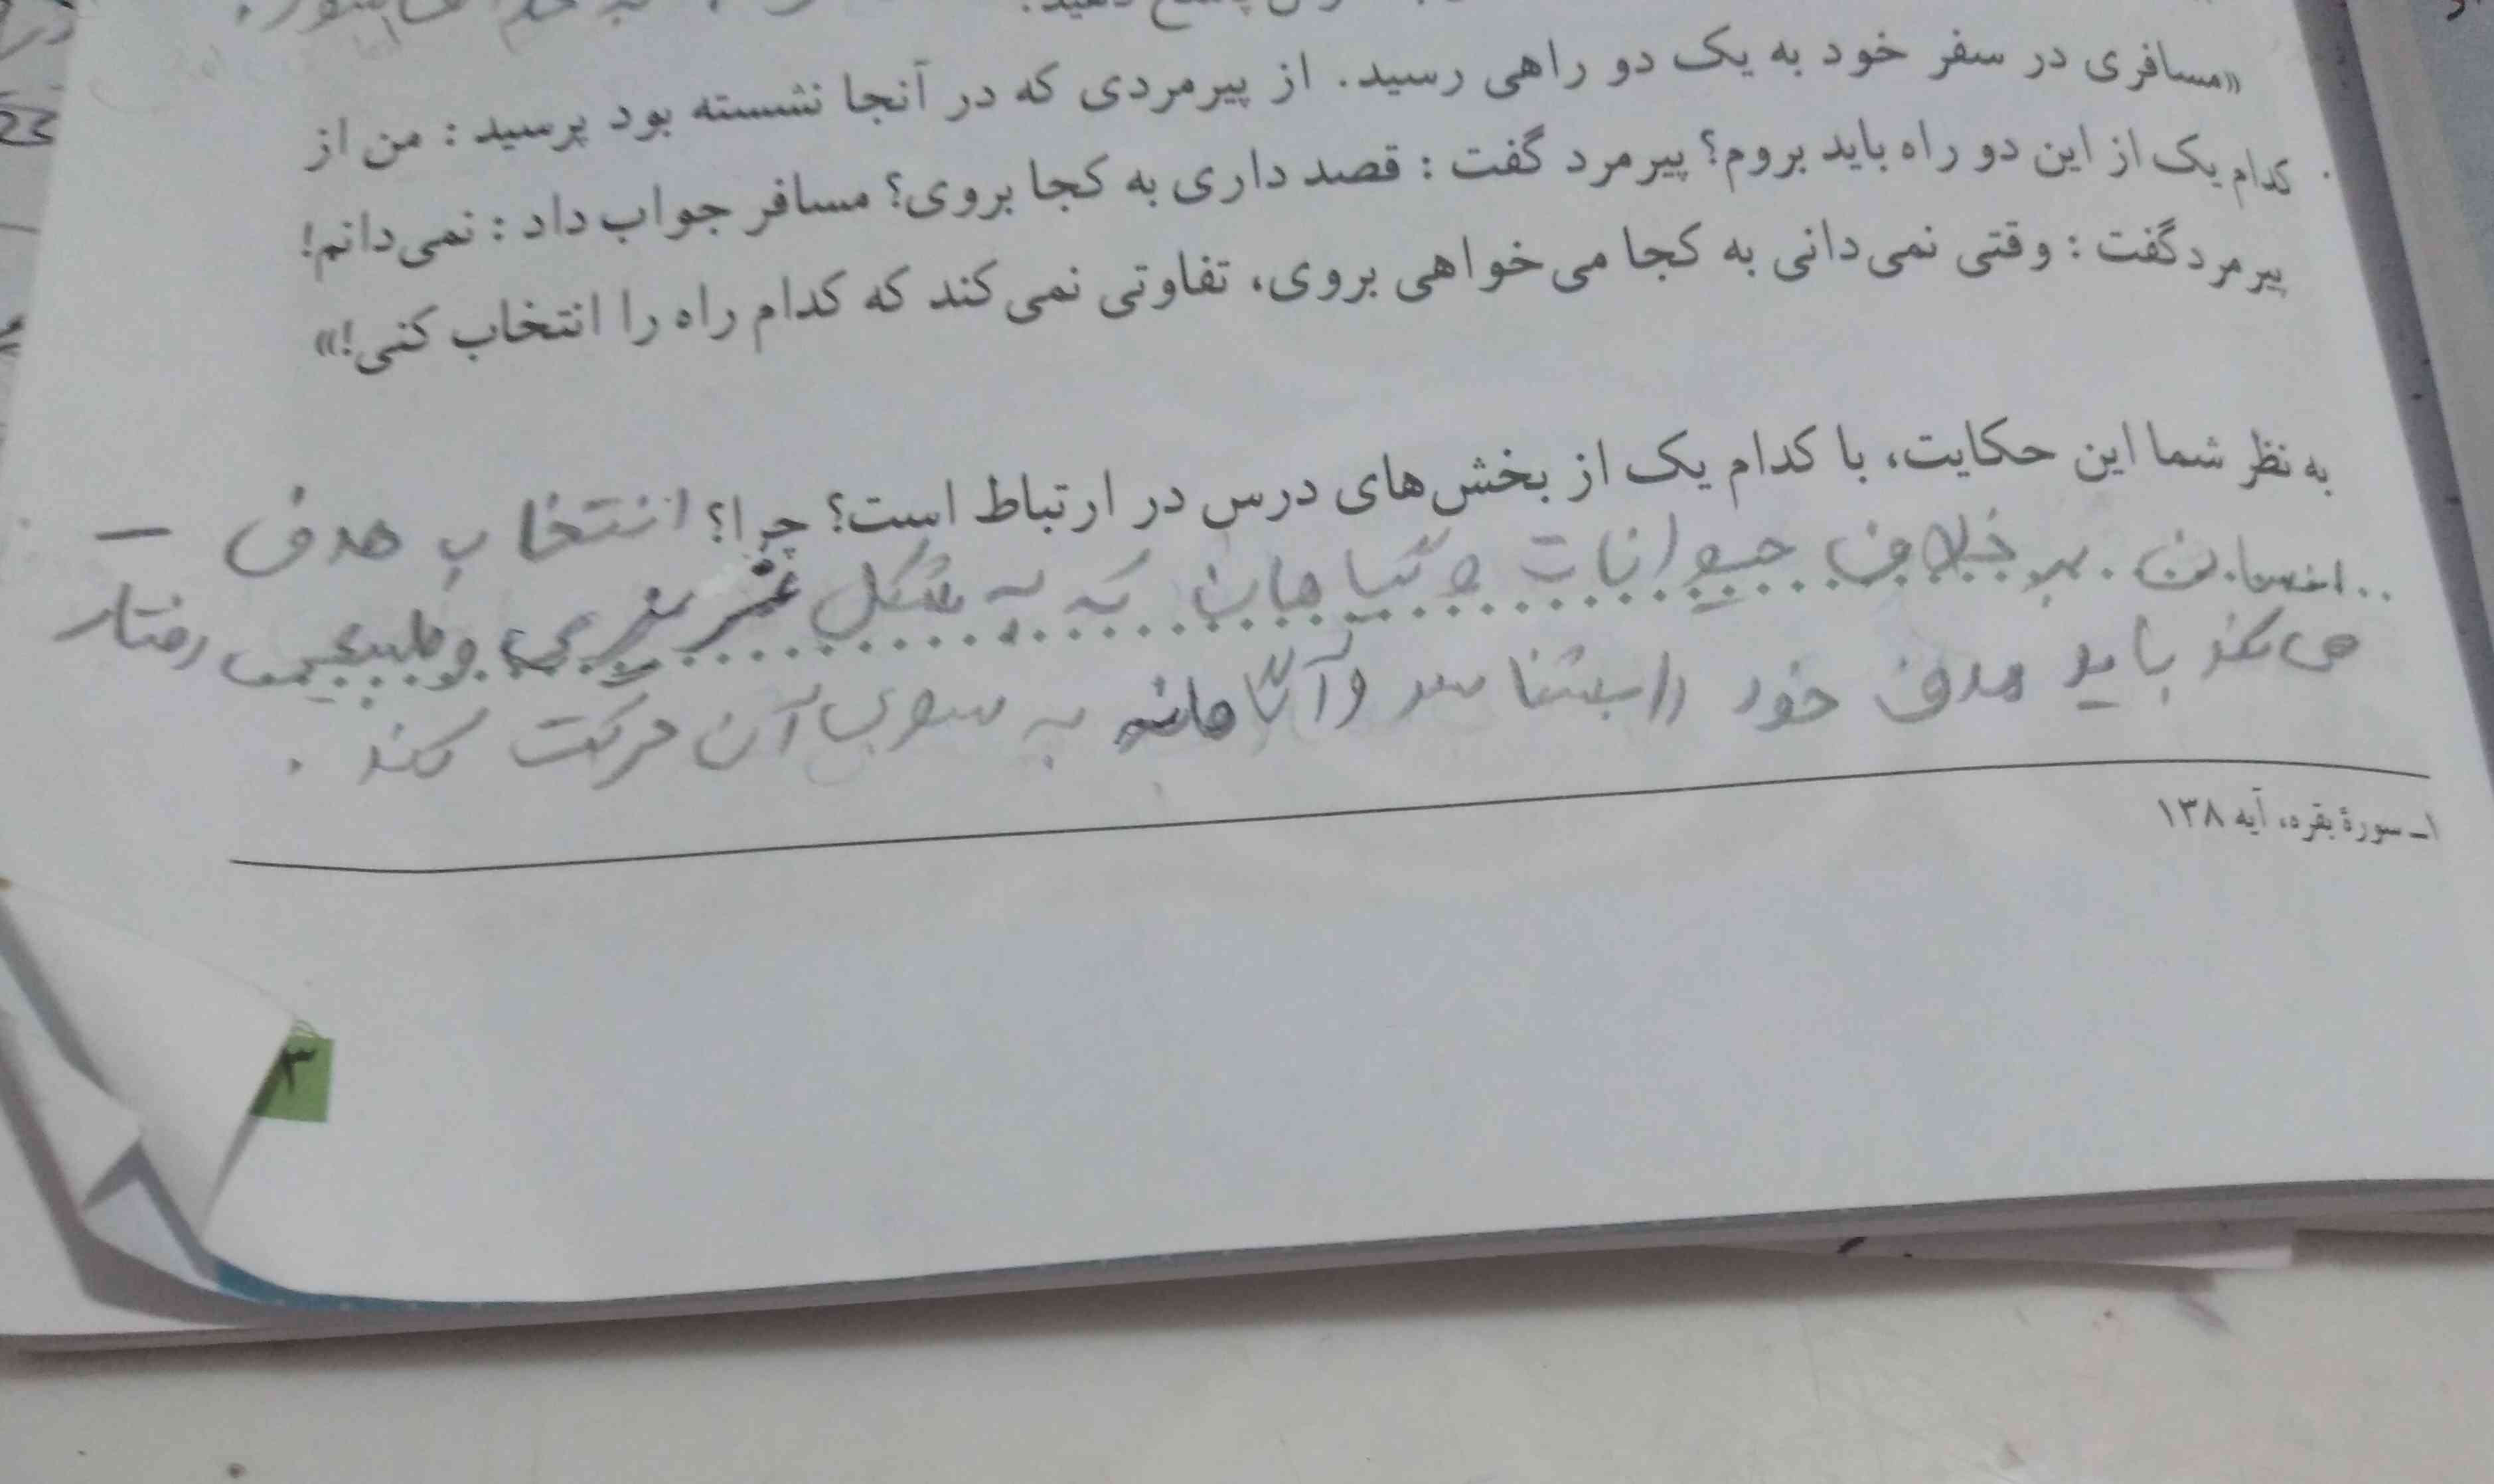 «مسافری در سفر خود به یک دو راهی رسید. از پیرمردی که در آنجا نشسته بود پرسید : من از
کدام یک از این دو راه باید بروم؟ پیرمرد گفت : قصد داری به کجا بروی؟ مسافر جواب داد : نمی‌دانم!
پیرمرد گفت : وقتی نمی‌دانی به کجا می‌خواهی بروی، تفاوتی نمی‌کند که کدام راه را انتخاب کنی!»
به نظر شما این حکایت، با کدام یک از بخش‌های درس در ارتباط است؟ چرا؟ انتخاب هدف –
انسان بر خلاف حیوانات و گیاهان که به شکل غریزی و طبیعی رفتار
می‌کند باید هدف خود را بشناسد و آگاهانه به سوی آن حرکت کند.
۱ـ سورۀ بقره، آیه ۱۳۸
۳